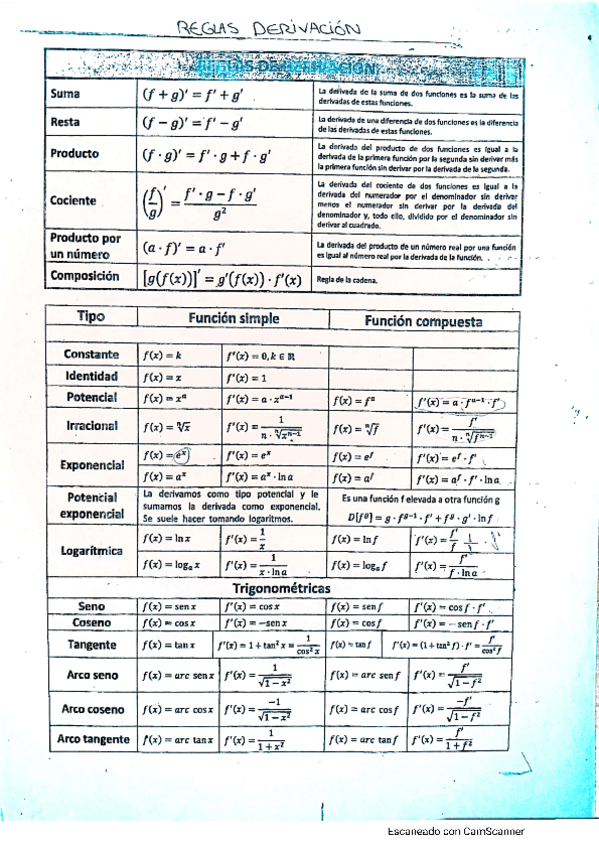 REGLAS DERIVACIÓN
REGLAS DE DERIVACIÓN
Suma (f + g)′ = f′ + g′ La derivada de la suma de dos funciones es la suma de las
derivadas de estas funciones.
Resta (f − g)′ = f′ − g′ La derivada de una diferencia de dos funciones es la diferencia
de las derivadas de estas funciones.
Producto (f · g)′ = f′ · g + f · g′ La derivada del producto de dos funciones es igual a la
derivada de la primera función por la segunda sin derivar más
la primera función sin derivar por la derivada de la segunda.
Cociente (f/g)′ = (f′ · g − f · g′)/g² La derivada del cociente de dos funciones es igual a la
derivada del numerador por el denominador sin derivar
menos el numerador sin derivar por la derivada del
denominador y, todo ello, dividido por el denominador sin
derivar al cuadrado.
Producto por
un número (a · f)′ = a · f′ La derivada del producto de un número real por una función
es igual al número real por la derivada de la función.
Composición [g(f(x))]′ = g′(f(x)) · f′(x) Regla de la cadena.
Tipo Función simple Función compuesta
Constante f(x) = k f′(x) = 0, k ∈ ℝ
Identidad f(x) = x f′(x) = 1
Potencial f(x) = xᵃ f′(x) = a · xᵃ⁻¹ f(x) = fᵃ f′(x) = a · fᵃ⁻¹ · f′
Irracional f(x) = ⁿ√x f′(x) = 1/(n · ⁿ√xⁿ⁻¹) f(x) = ⁿ√f f′(x) = f′/(n · ⁿ√fⁿ⁻¹)
Exponencial f(x) = eˣ f′(x) = eˣ f(x) = e^f f′(x) = e^f · f′
f(x) = aˣ f′(x) = aˣ · ln a f(x) = a^f f′(x) = a^f · f′ · ln a
Potencial
exponencial
La derivamos como tipo potencial y le
sumamos la derivada como exponencial.
Se suele hacer tomando logaritmos.
Es una función f elevada a otra función g
D[f^g] = g · f^(g−1) · f′ + f^g · g′ · ln f
Logarítmica f(x) = ln x f′(x) = 1/x f(x) = ln f f′(x) = f′/f
f(x) = logₐ x f′(x) = 1/(x · ln a) f(x) = logₐ f f′(x) = f′/(f · ln a)
Trigonométricas
Seno f(x) = sen x f′(x) = cos x f(x) = sen f f′(x) = cos f · f′
Coseno f(x) = cos x f′(x) = −sen x f(x) = cos f f′(x) = − sen f · f′
Tangente f(x) = tan x f′(x) = 1 + tan² x = 1/cos² x f(x) = tan f f′(x) = (1 + tan² f) · f′ = f′/cos² f
Arco seno f(x) = arc sen x f′(x) = 1/√(1 − x²) f(x) = arc sen f f′(x) = f′/√(1 − f²)
Arco coseno f(x) = arc cos x f′(x) = −1/√(1 − x²) f(x) = arc cos f f′(x) = −f′/√(1 − f²)
Arco tangente f(x) = arc tan x f′(x) = 1/(1 + x²) f(x) = arc tan f f′(x) = f′/(1 + f²)
Escaneado con CamScanner